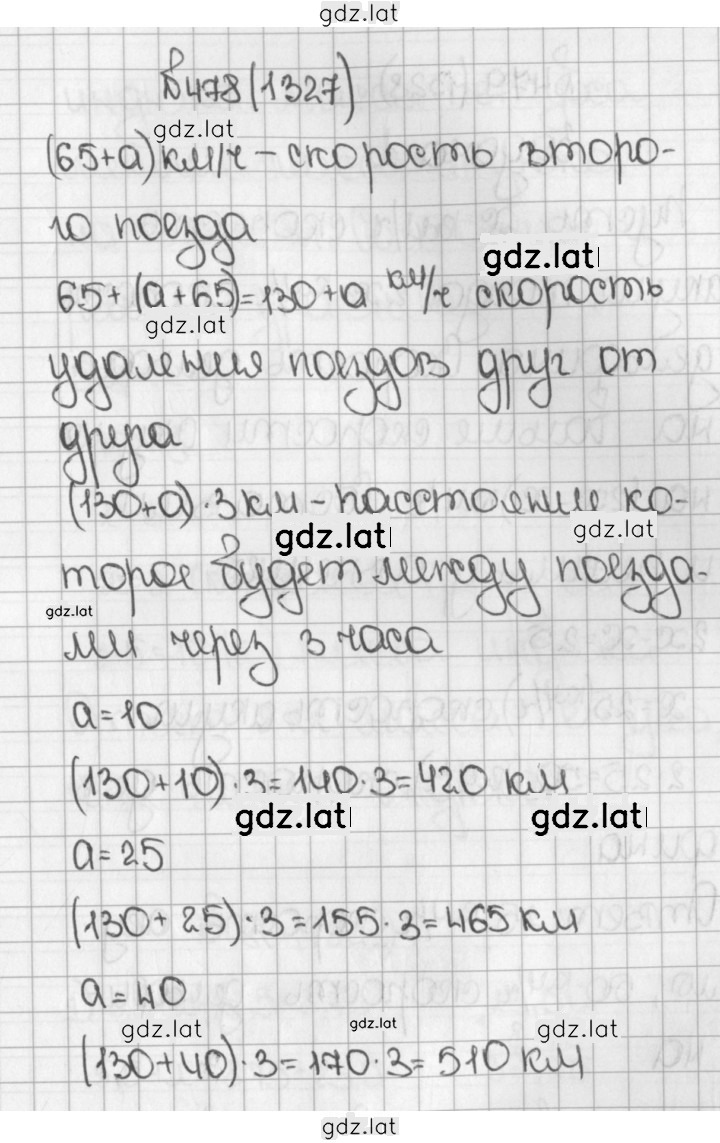 gdz.lat
№478(1327)
gdz.lat
(65+а) км/ч - скорость второ-
го поезда
gdz.lat
65+(а+65)=130+а км/ч скорость
gdz.lat
удаления поездов друг от
друга
(130+а)·3 км - расстояние ко-
gdz.lat gdz.lat
торое будет между поезда-
gdz.lat
ми через 3 часа
а=10
(130+10)·3=140·3=420 км
gdz.lat gdz.lat
а=25
(130+25)·3=155·3=465 км
а=40
gdz.lat gdz.lat gdz.lat
(130+40)·3=170·3=510 км
gdz.lat